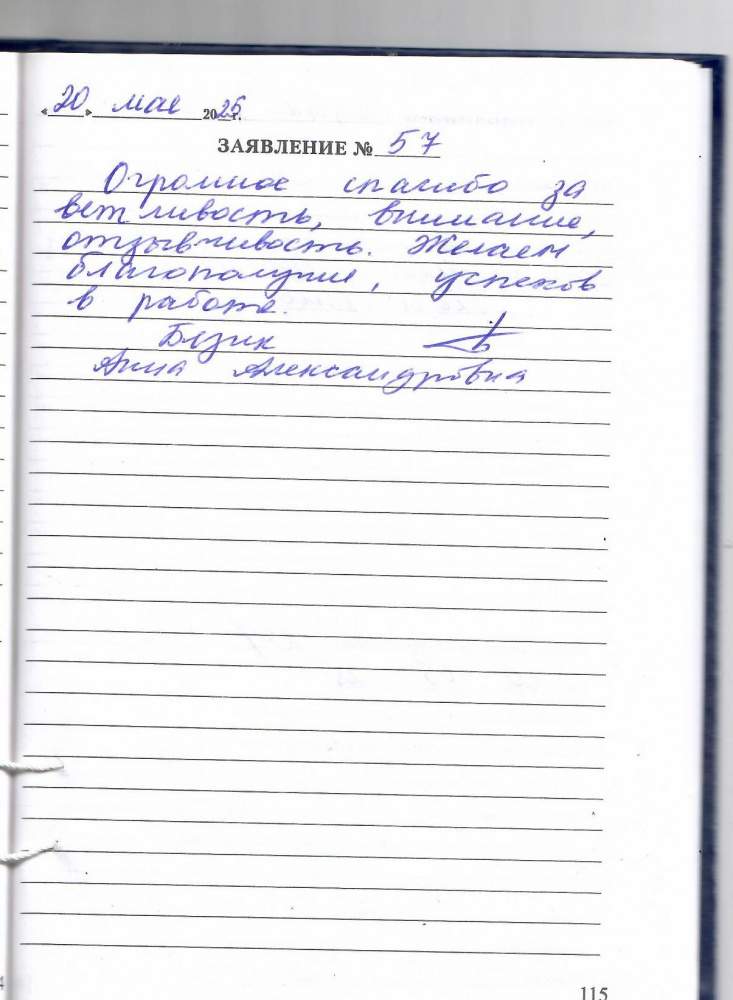 «20» мая 2025 г.
ЗАЯВЛЕНИЕ № 57
Огромное спасибо за
вежливость, внимание,
отзывчивость. Желаем
благополучия, успехов
в работе.
Бузик
Анна Александровна
115